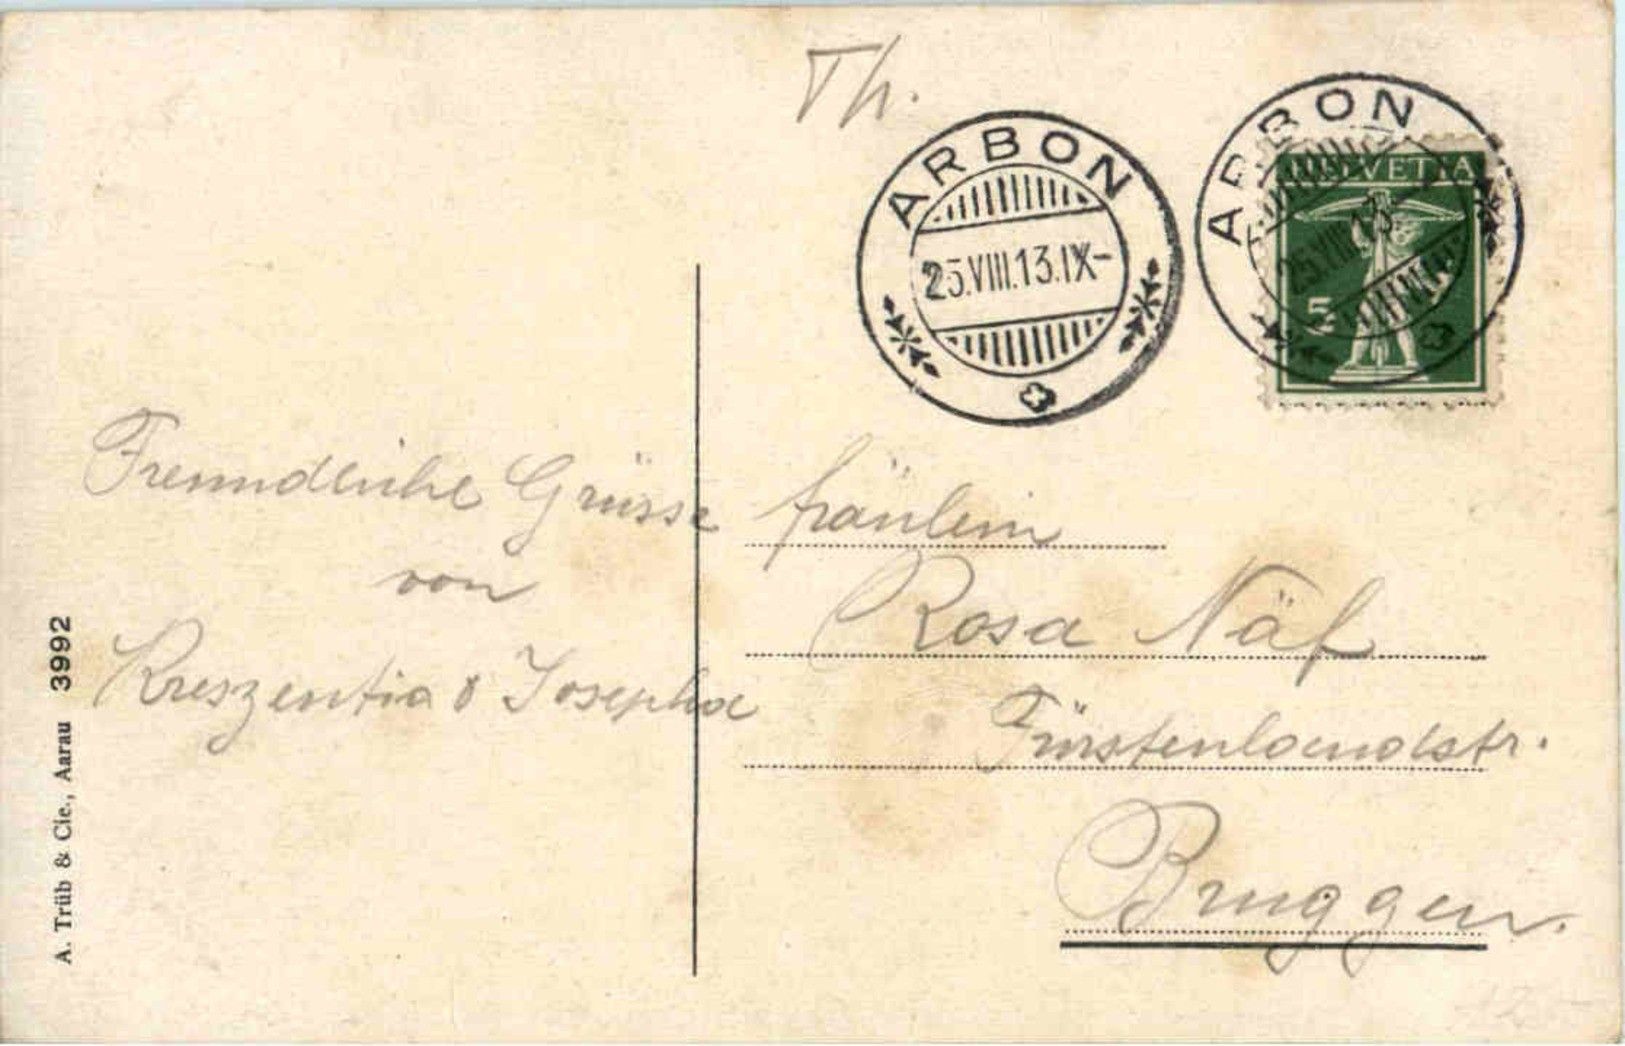 Th.
ARBON
25.VIII.13.IX-
ARBON
25.VIII.13
HELVETIA
5
Freundliche Grüsse
von
Kreszentia & Josepha
Fräulein
Rosa Näf
Fürstenlandstr.
Bruggen.
A. Trüb & Cie., Aarau 3992